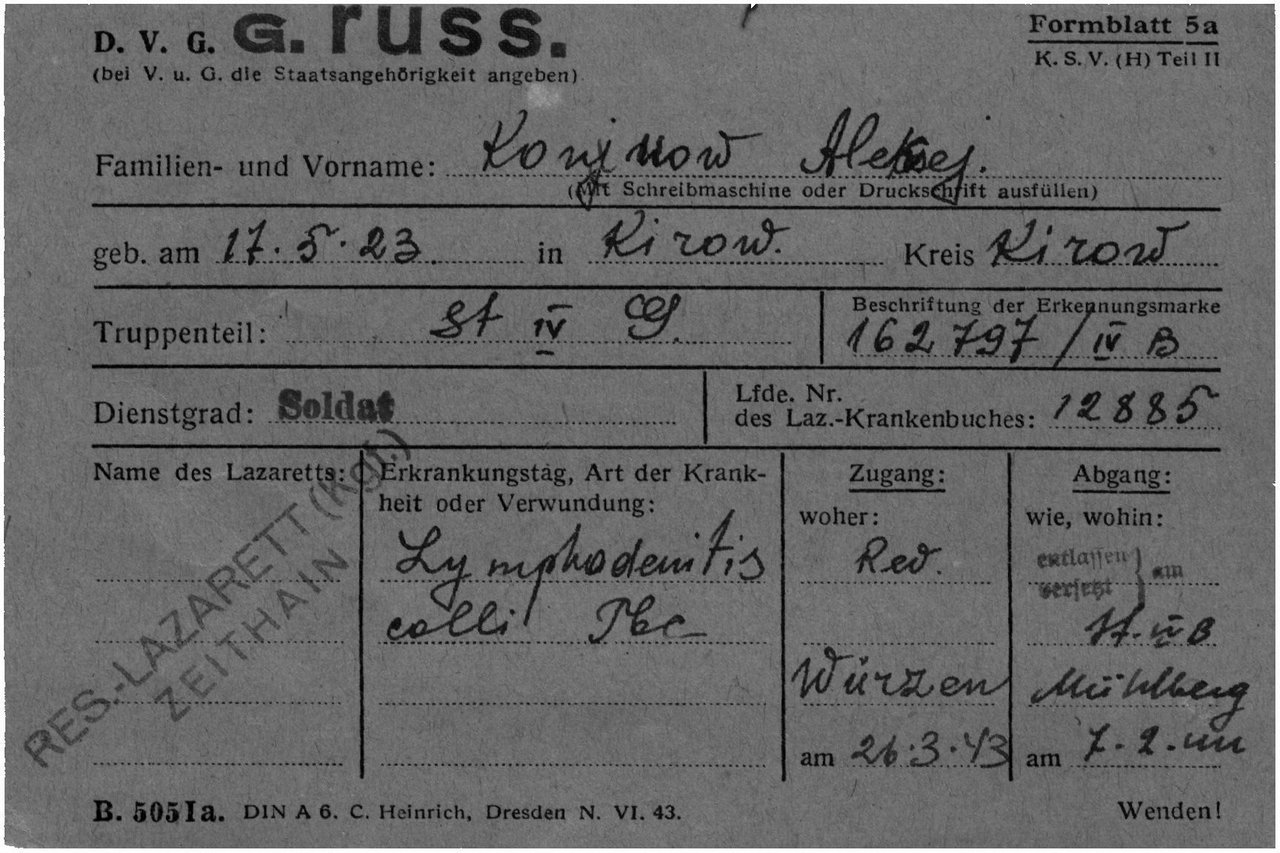 D. V. G. G. russ.
Formblatt 5a
(bei V. u. G. die Staatsangehörigkeit angeben)
K. S. V. (H) Teil II
Familien- und Vorname: Aleksej.
(Mit Schreibmaschine oder Druckschrift ausfüllen)
geb. am 17. 5. 23. in Kirow. Kreis Kirow
Truppenteil: St IV G.
Beschriftung der Erkennungsmarke
162797 / IV B
Dienstgrad: Soldat
Lfde. Nr.
des Laz.-Krankenbuches: 12885
Name des Lazaretts:
RES.-LAZARETT (Kgf.)
ZEITHAIN
Erkrankungstag, Art der Krank-
heit oder Verwundung:
Lymphadenitis
colli Tbc
Zugang:
woher:
Rev.
Würzen
am 26.3.43
Abgang:
wie, wohin:
entlassen } am
versetzt
St. IV B
Mühlberg
am 7. 2. 44
B. 5051a. DIN A 6. C. Heinrich, Dresden N. VI. 43.
Wenden!